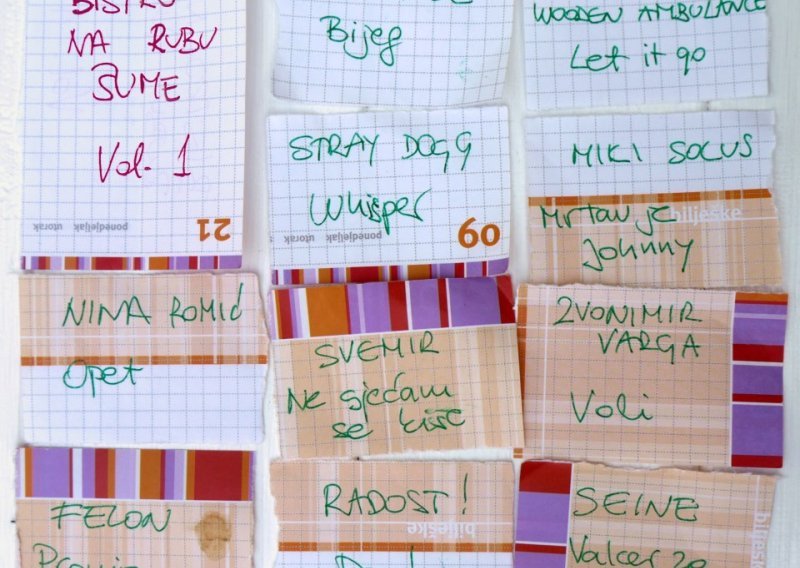 BISTRO
NA RUBU
ŠUME
Vol. 1
21
ponedjeljak utorak
Bijeg
WOODEN AMBULANCE
Let it go
STRAY DOGG
Whisper
ponedjeljak utorak
60
MIKI SOLUS
Mrtav je
bilješke
Johnny
NINA ROMIĆ
Opet
SVEMIR
Ne sjećam
se kiše
ZVONIMIR
VARGA
Voli
FELON
RADOST!
bilješke
SEINE
Valcer za
bilješke